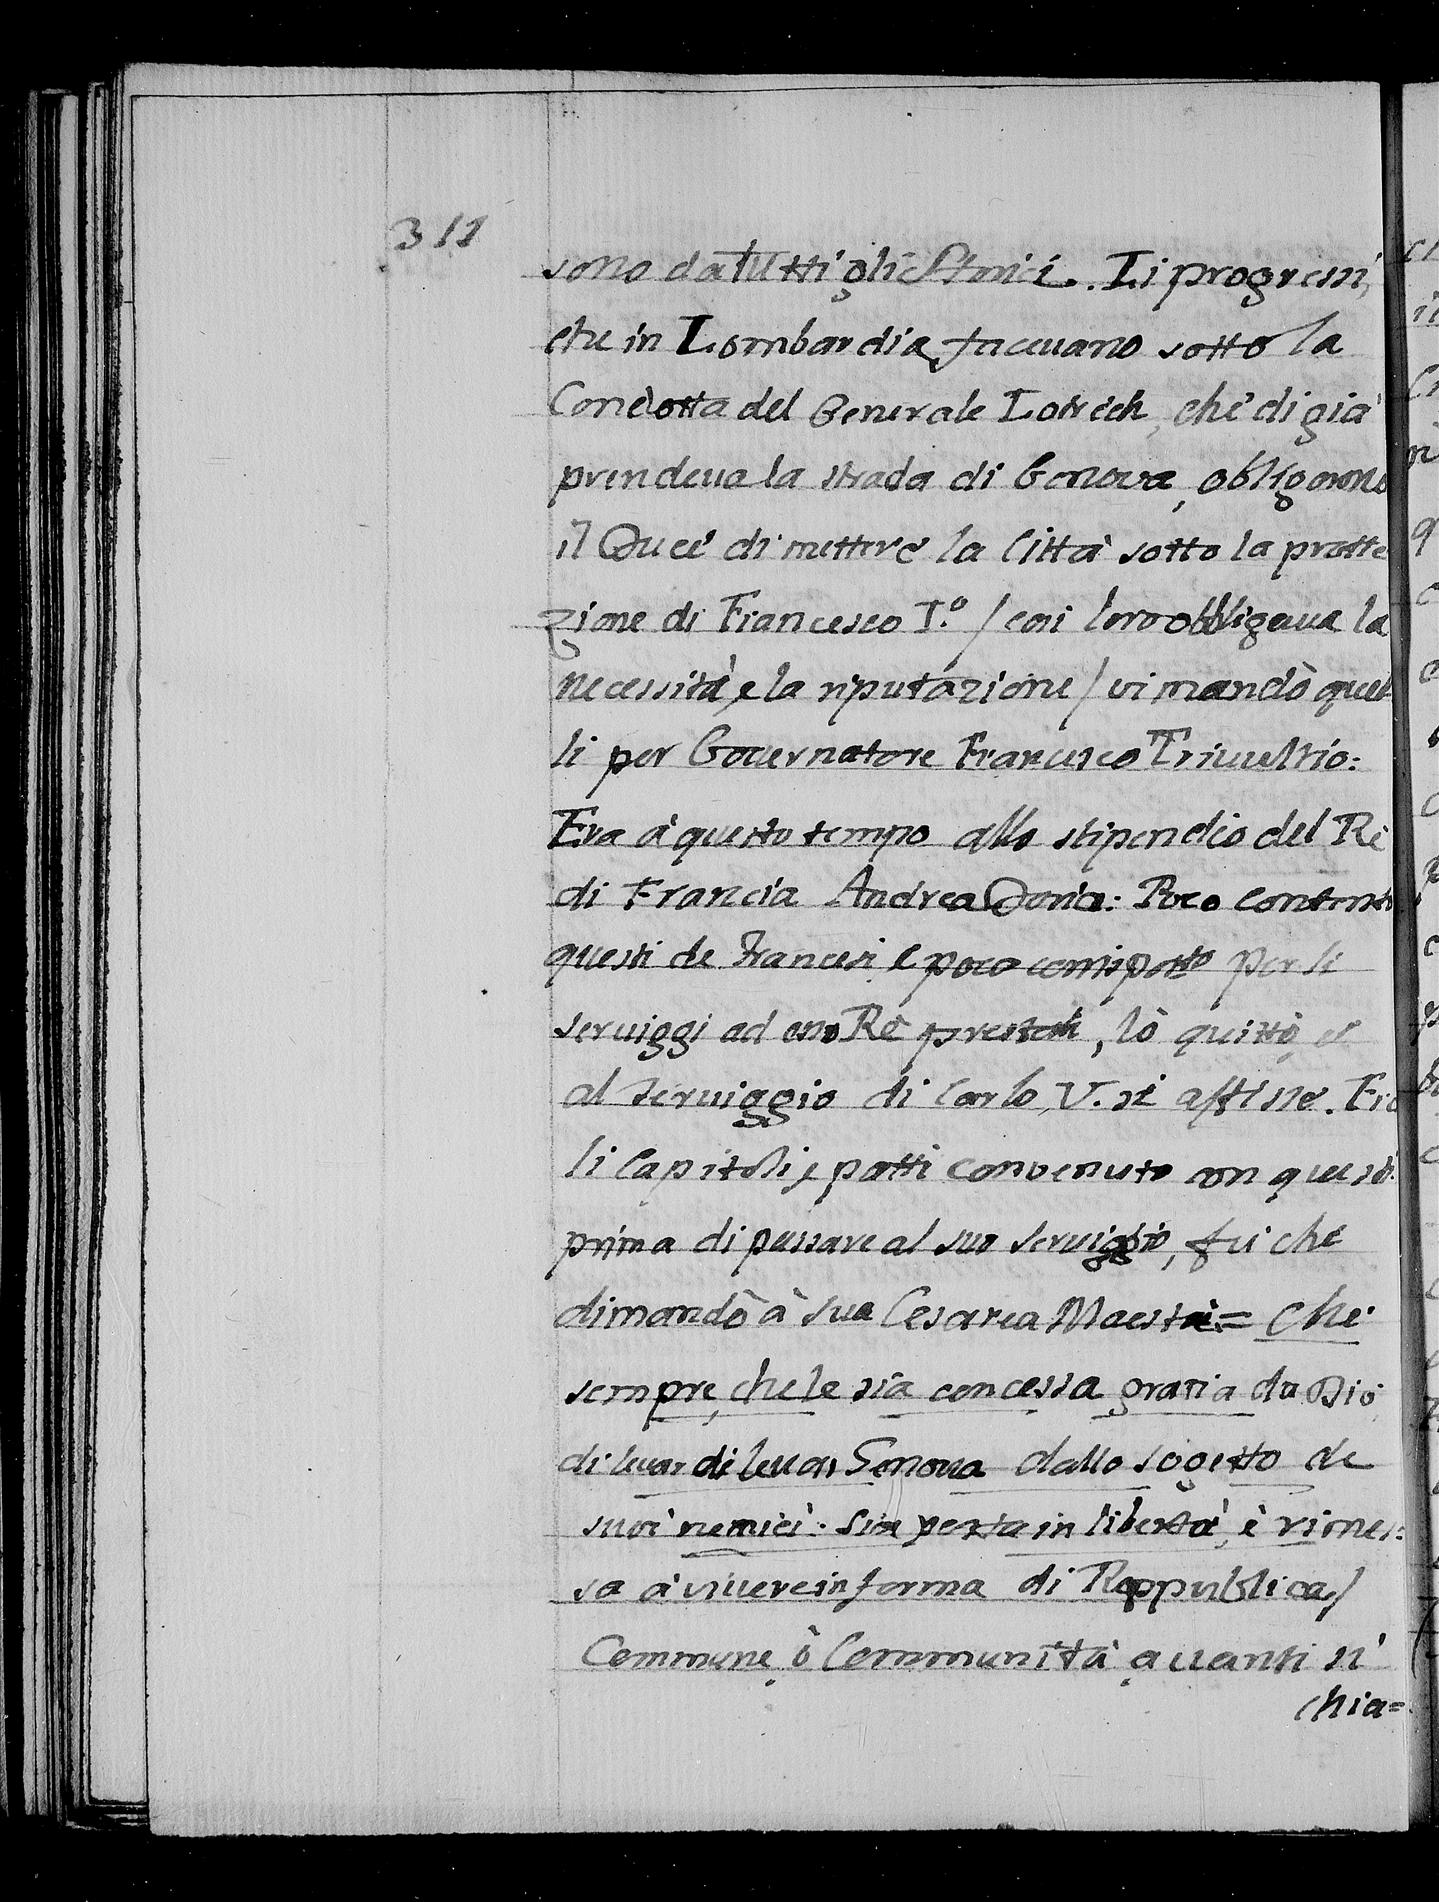 311
sono da tutti gli Storici. Li progressi,
che in Lombardia, facevano sotto la
Condotta del Generale Lotrech, che di già
prendeua la strada di Genova, obligorono
il Duce di mettere la Città sotto la protte
zione di Francesco I.º / cosi loro obbligaua la
necessità, e la riputazione / vi mandò quel
li per Gouernatore Francesco Triuultio:
Era à questo tempo allo stipendio del Rè
di Francia Andrea Doria: Poco contento
questi de Francesi e poco corrisposto per li
seruiggi ad esso Rè prestati, lò quittò, et
al seruiggio di Carlo V. si astine. Fra
li Capitoli, e patti convenuto con questi
prima di passare al suo seruiggio, fù che
dimandò à sua Cesarea Maestà = Che
sempre, che le sia concessa gratia da Dio
di leuar di leuar Genoua dallo sogetto de
suoi nemici. Sia posta in libertà, è rimes:
sa à viuere in forma di Reppublica /
Commune, ò Communità quanti si
chia=